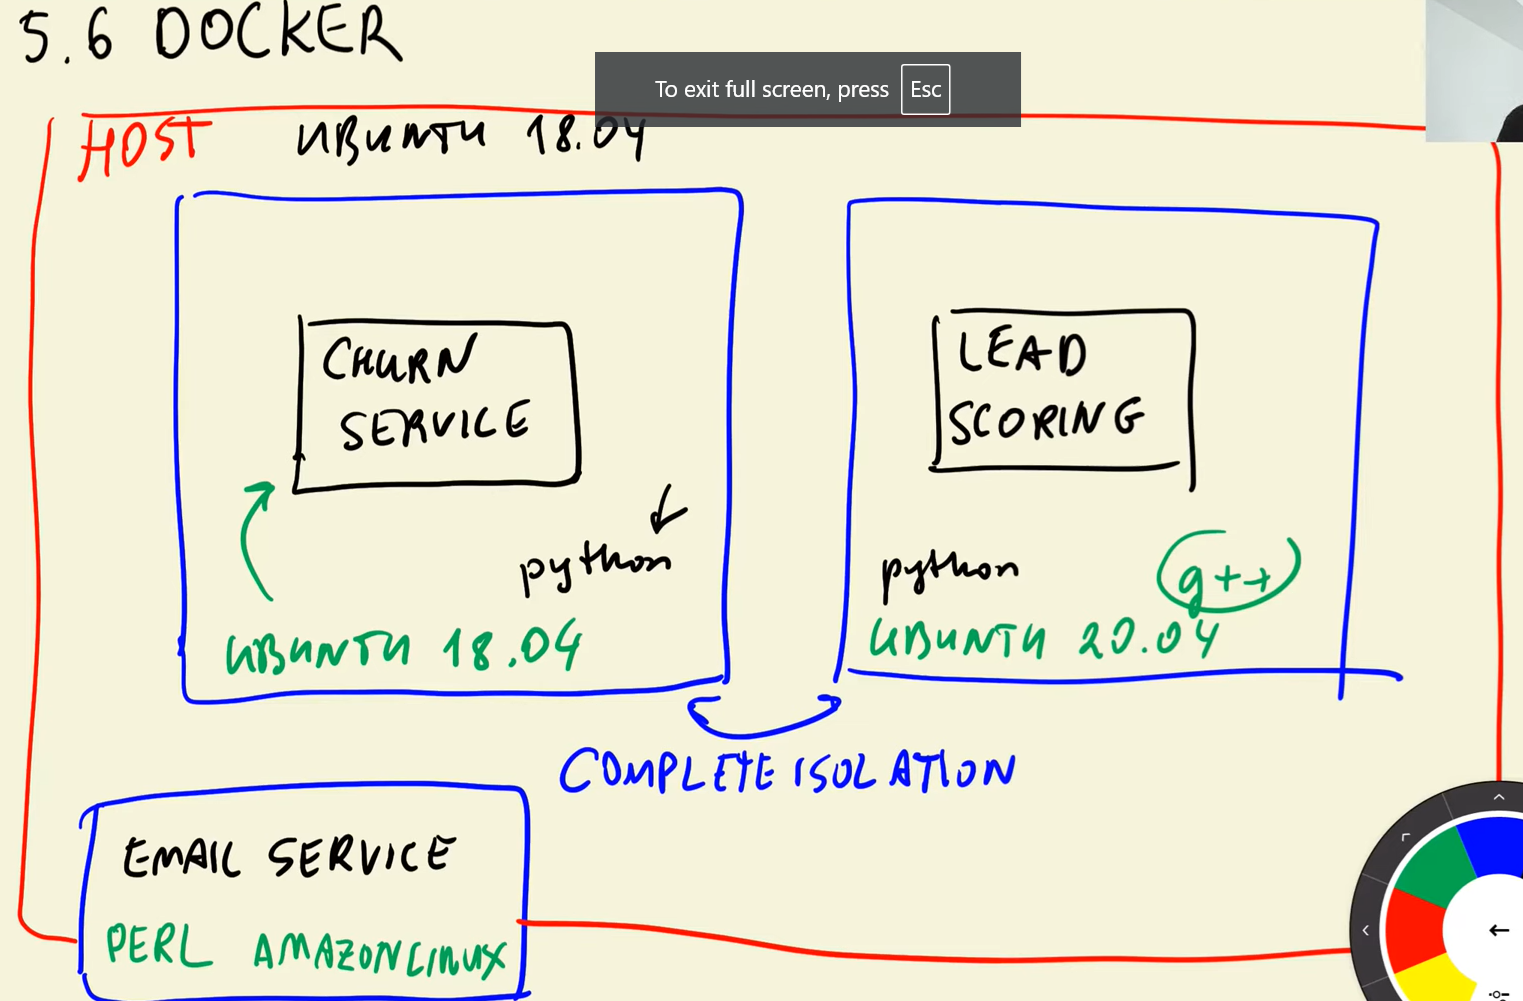 5.6 DOCKER
To exit full screen, press Esc
HOST UBUNTU 18.04
CHURN
SERVICE
python
UBUNTU 18.04
LEAD
SCORING
python g++
UBUNTU 20.04
COMPLETE ISOLATION
EMAIL SERVICE
PERL AMAZON LINUX